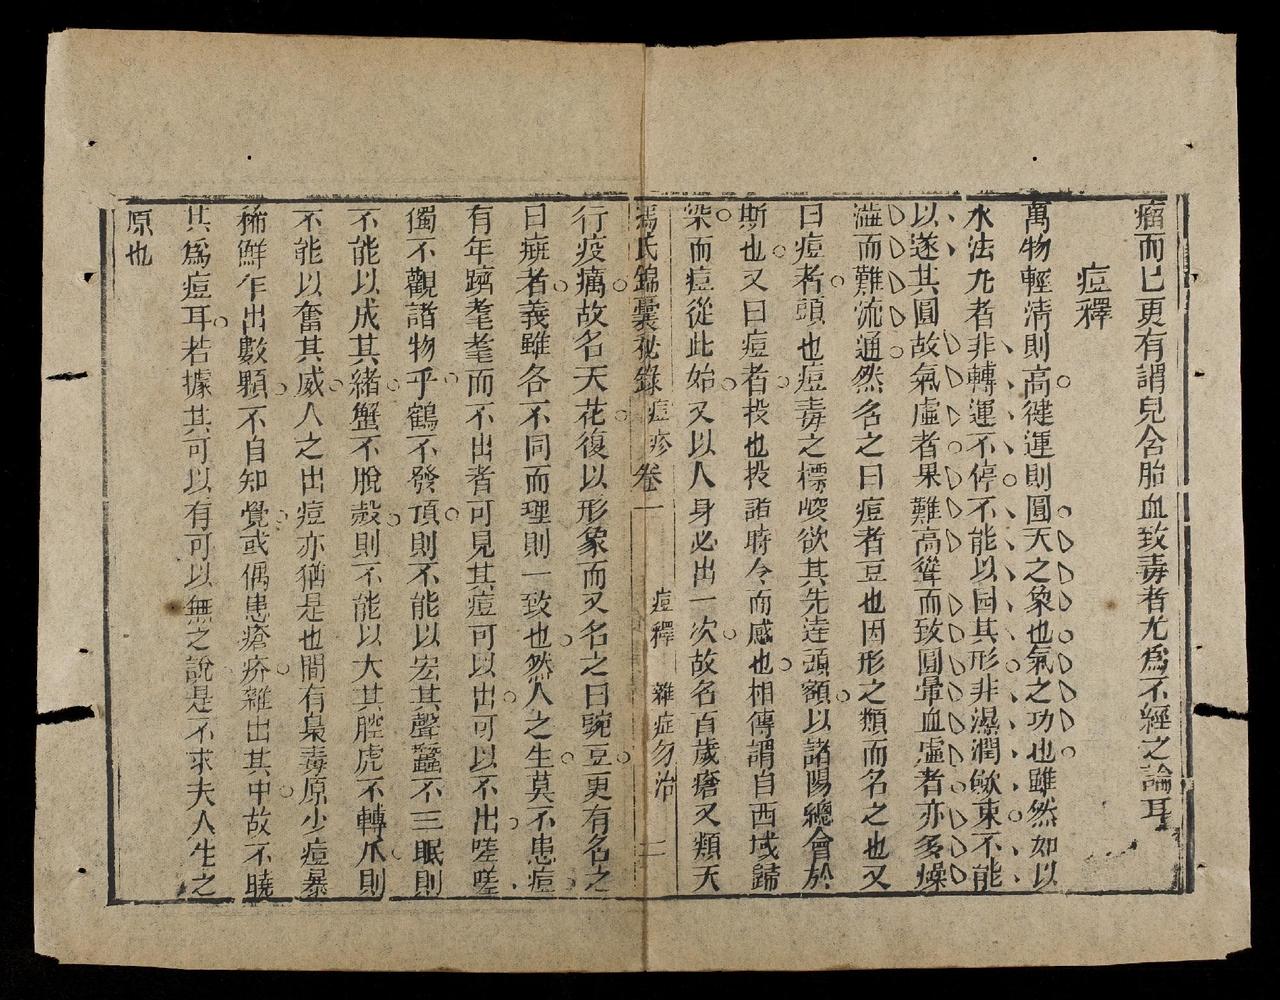 瘤而已更有謂兒含胎血致毒者尤爲不經之論耳
痘釋
萬物輕清則高健運則圓天之象也氣之功也雖然如以
水法尤者非轉運不停不能以固其形非濕潤歛束不能
以遂其圓故氣虛者果難高聳而致圓暈血虛者亦多燥
澁而難流通然名之曰痘者豆也因形之類而名之也又
曰痘者頭也痘毒之標峻欲其先達頭額以諸陽總會於
斯也又曰痘者投也投諸時令而感也相傳謂自西域歸
染而痘從此始又以人身必出一次故名百歲瘡又類天
馮氏錦囊秘錄 痘疹卷一 痘釋 雜症勿治 二
行疫癘故名天花復以形象而又名之曰豌豆更有名之
曰㾦者義雖各不同而理則一致也然人之生莫不患痘
有年躋耄耋而不出者可見其痘可以出可以不出嗟嗟
獨不觀諸物乎鶴不發頂則不能以宏其聲蠶不三眠則
不能以成其緒蟹不脫殼則不能以大其腔虎不轉爪則
不能以奮其威人之出痘亦猶是也間有梟毒原少痘暴
稀鮮乍出數顆不自知覺或偶患瘡疥雜出其中故不曉
其爲痘耳若據其可以有可以無之說是不求夫人生之
原也